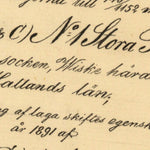 till 1152 m
c) No 1 Stora
socken, Wiske härad
Hallands län,
af laga skiftes egensk
år 1891 af